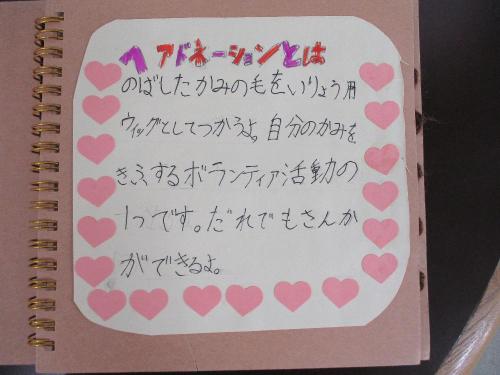 ヘアドネーションとは
のばしたかみの毛をいりょう用
ウィッグとしてつかうよ。自分のかみを
きふするボランティア活動の
1つです。だれでもさんか
ができるよ。